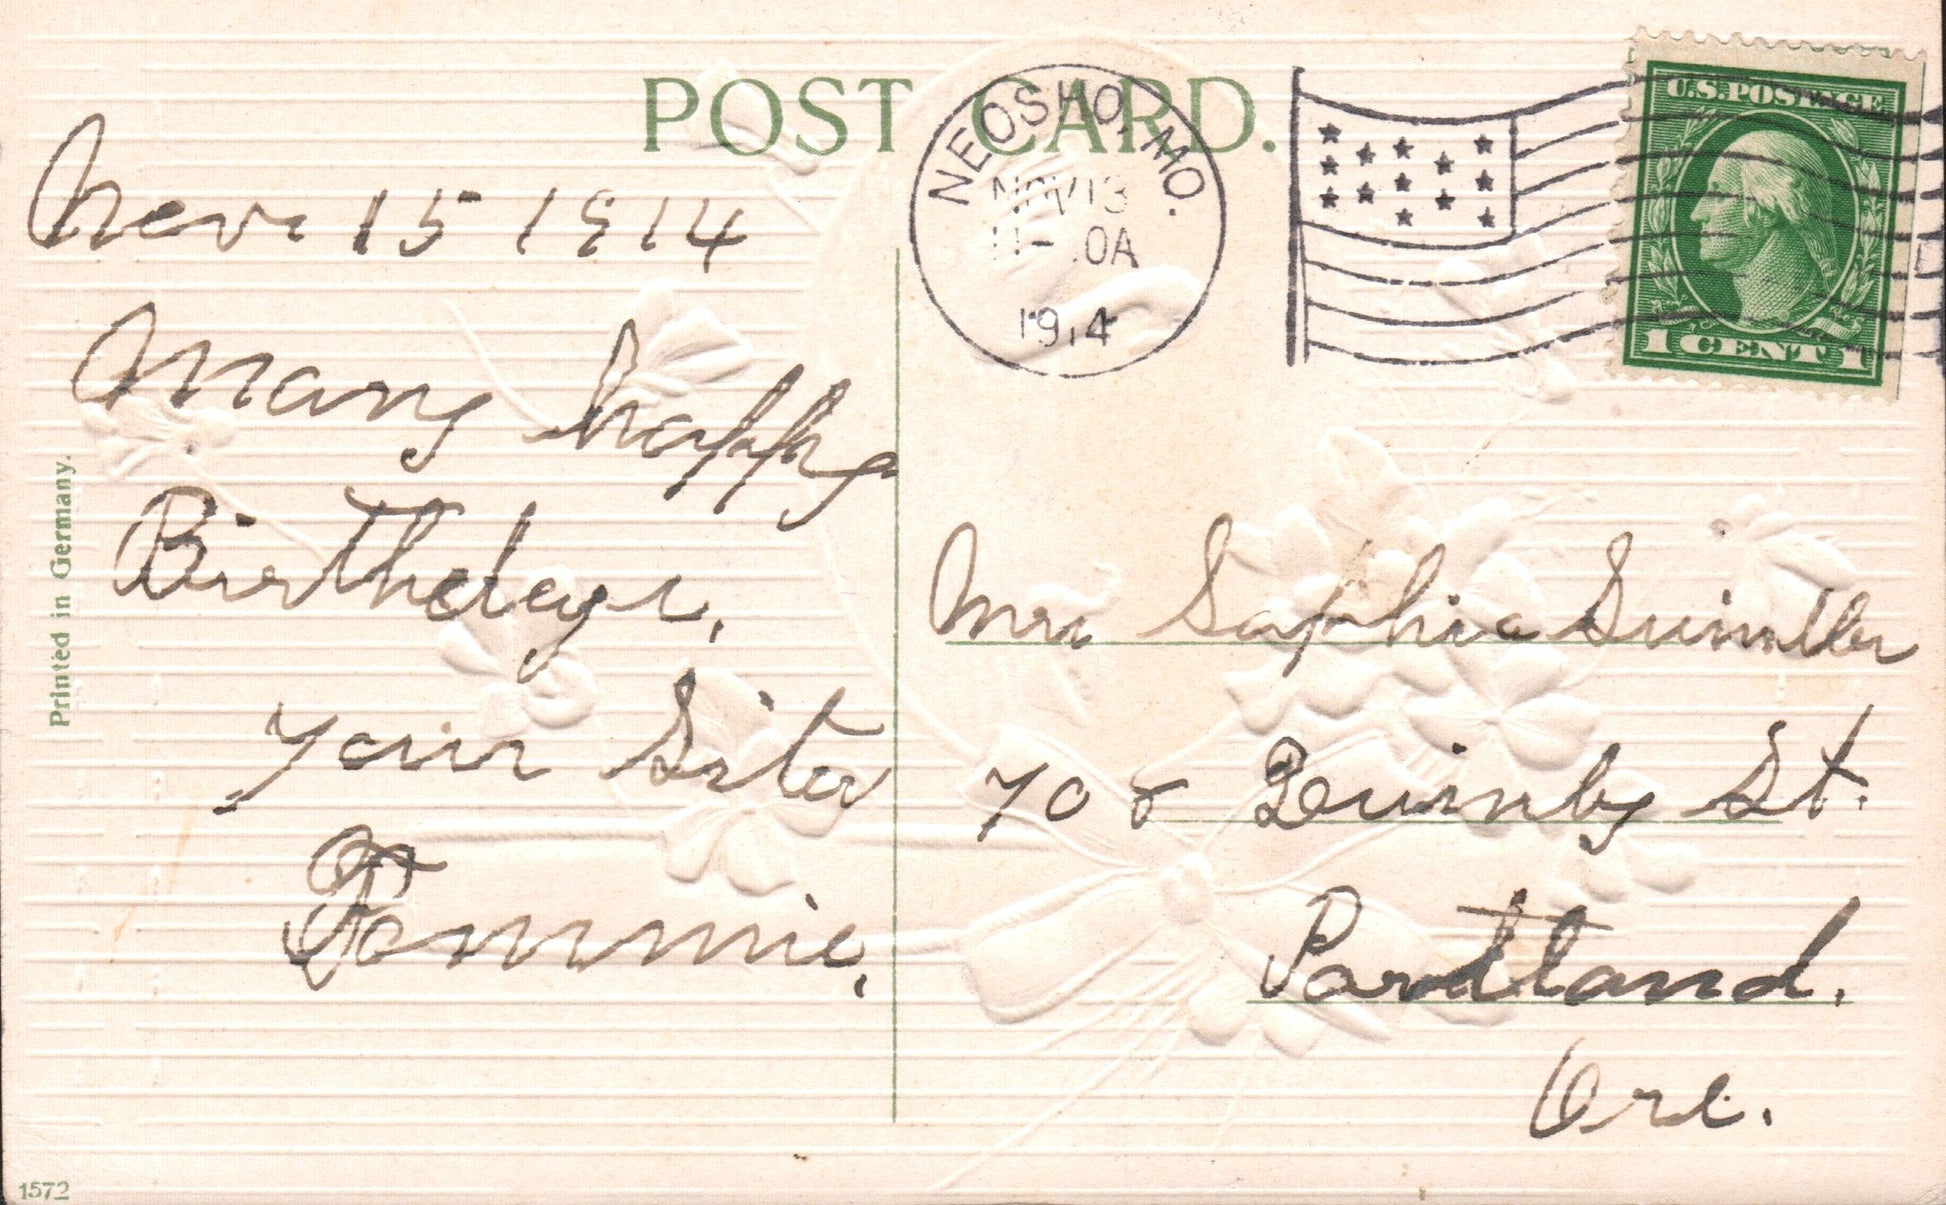 POST CARD.
NEOSHO, MO.
NOV 13
11- 0A
1914
U.S. POSTAGE
1 CENT 1
Nov. 15 1914
Many happy
Birthdays,
your Sister
Tommie,
Mrs Sophia
708 Quinby St.
Portland.
Ore.
Printed in Germany.
1572